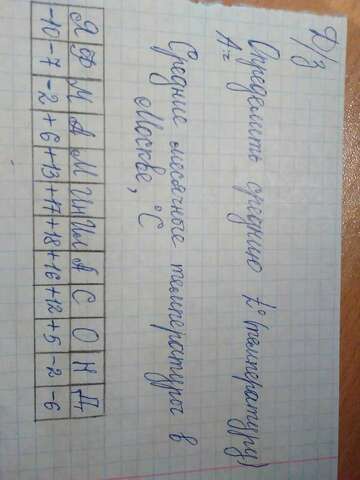 Д/з
Определить среднюю t° (температуру)
A=
Средние месячные температуры в
Москве, °C
Я Ф М А М Ин Ил А С О Н Д
-10 -7 -2 +6 +13 +17 +18 +16 +12 +5 -2 -6